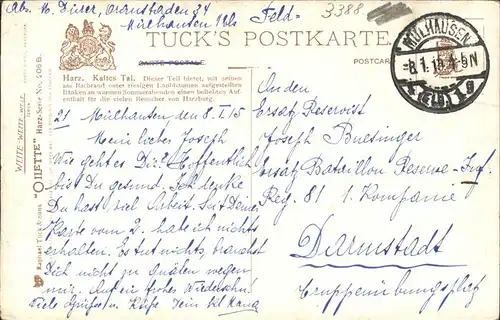 Abs. M. Dürer, Oranstaden 34
Mülhausen i/Els
Feld-
3388
TUCK'S POSTKARTE
CARTE POSTALE
POSTCARD
MÜLHAUSEN
-8.1.15.4-5N
(ELS) 1 g
Harz. Kaltes Tal. Dieser Teil bietet, mit seinen
am Bachrand unter riesigen Laubbäumen aufgestellten
Bänken an warmen Sommerabenden einen beliebten Auf-
enthalt für die vielen Besucher von Harzburg.
WEITE-WEITE-WELT
Raphael Tuck & Sons "OILETTE" Harz-Serie No. 206 B.
21 Mülhausen den 8.I.15
Mein lieber Joseph
Wie geht es Dir? Hoffentlich
bist Du gesund. Ich denke
Du hast viel Arbeit. Seit Deiner
Karte vom 2. habe ich nichts
erhalten. Es tut nichts, brauchst
Dich nicht zu quälen wegen
mir. Auf ein frohes Wiedersehn!
Viele Grüsse u. Küsse Dein
An den
Ersatz Reservist
Joseph Buesinger
Ersatz Bataillon Reserve-Inf.
Reg. 81 1. Kompanie
Darmstadt
Truppenübungsplatz